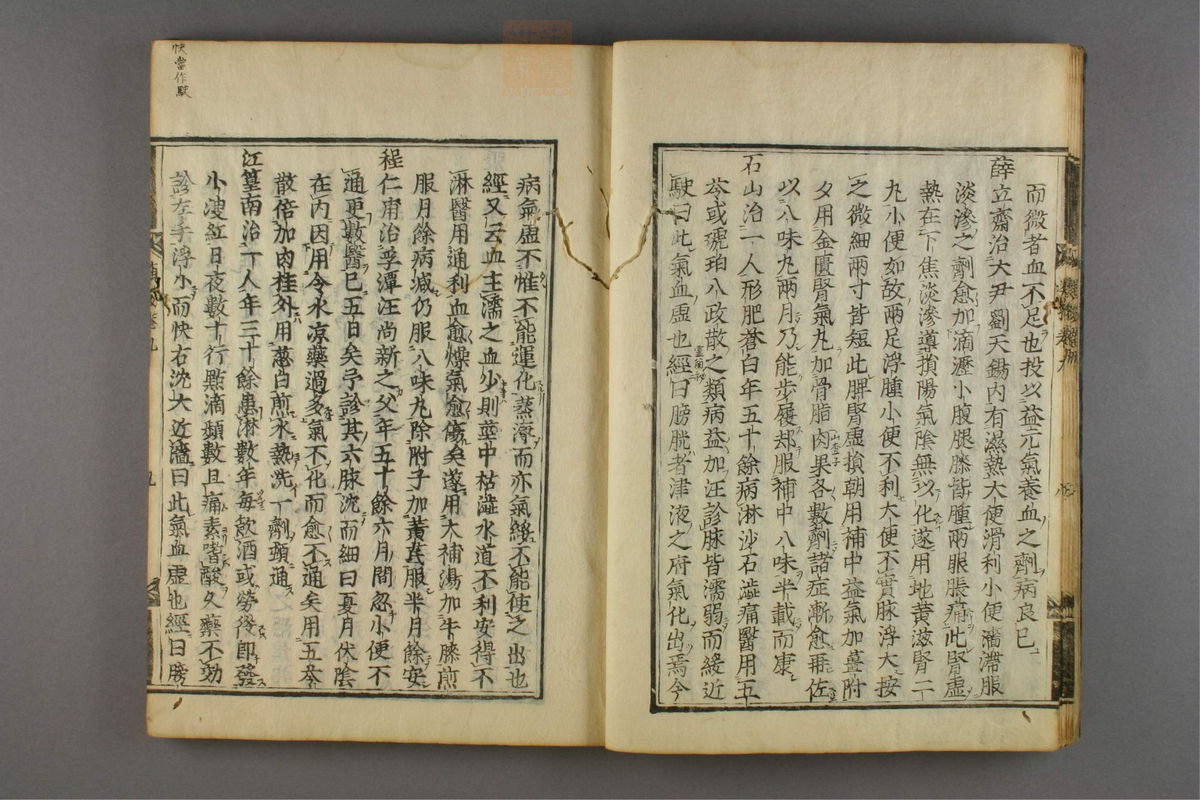 而微者血不足也投以益元氣養血之劑病良已
薛立齋治大尹劉天錫內有濕熱大便滑利小便濇滯服
淡滲之劑愈加滴瀝小腹腿膝皆腫兩眼脹痛此腎虛
熱在下焦淡滲導損陽氣陰無以化遂用地黃滋腎二
丸小便如故兩足浮腫小便不利大便不實脉浮大按
之微細兩寸皆短此脾腎虛損朝用補中益氣加薑附
夕用金匱腎氣丸加骨脂肉果各數劑諸症漸愈再佐
以八味丸兩月乃能步履却服補中八味半載而康
石山治一人形肥蒼白年五十餘病淋沙石澁痛醫用五
苓或琥珀八政散之類病益加汪診脉皆濡弱而緩近
駛曰此氣血虛也經曰膀胱者津液之府氣化出焉今
病氣虛不惟不能運化蒸溽而亦氣餒不能使之出也
經又云血主濡之血少則莖中枯澁水道不利安得不
淋醫用通利血愈燥氣愈傷矣遂用大補湯加牛膝煎
服月餘病减仍服八味丸除附子加黃芪服半月餘安
程仁甫治孚潭汪尚新之父年五十餘六月間忽小便不
通更數醫已五日矣予診其六脉沈而細曰夏月伏陰
在內因用冷水凉藥過多氣不化而愈不通矣用五苓
散倍加肉桂外用葱白煎水熱洗一劑頓通
江篁南治一人年三十餘患淋數年每飲酒或勞後即發
小溲紅日夜數十行點滴頻數且痛素嗜酸久藥不効
診左手浮小而快右沈大近濇曰此氣血虛也經曰膀
快當作駛